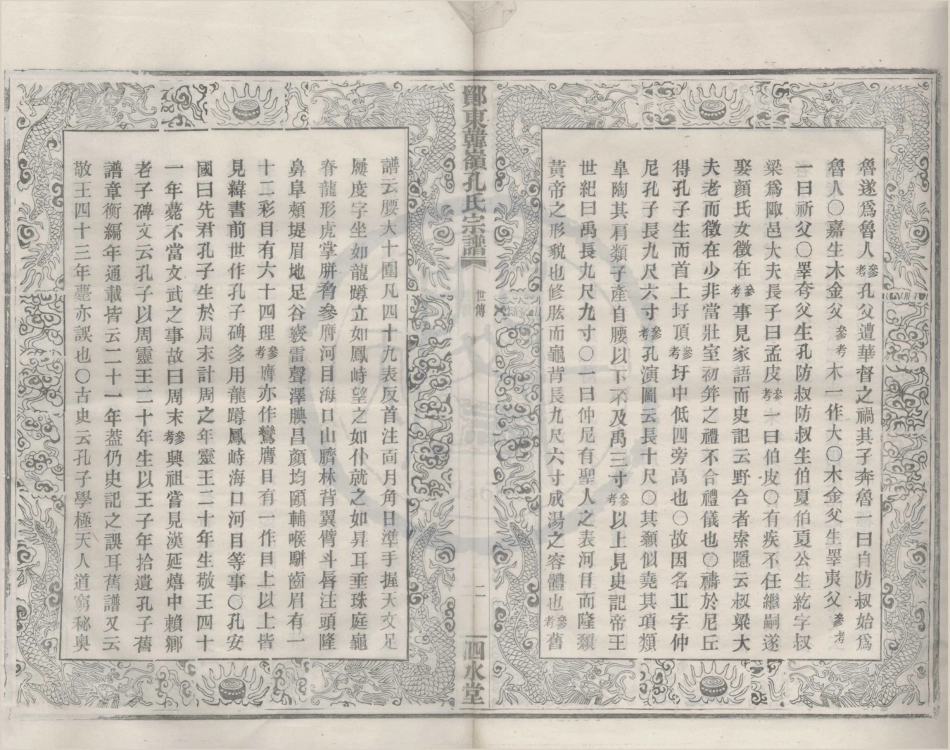 魯遂爲魯人參考孔父遭華督之禍其子奔魯一曰自防叔始爲
魯人○嘉生木金父參考木一作大○木金父生睪夷父參考
一曰祈父○睪夷父生孔防叔防叔生伯夏伯夏公生紇字叔
梁爲陬邑大夫長子曰孟皮參考一曰伯皮○有疾不任繼嗣遂
娶顏氏女徵在參考事見家語而史記云野合者索隱云叔梁大
夫老而徵在少非當壯室初筓之禮不合禮儀也○禱於尼丘
得孔子生而首上圩頂參考圩中低四旁高也○故因名丘字仲
尼孔子長九尺六寸參考孔演圖云長十尺○其顙似堯其項類
皐陶其肩類子產自腰以下不及禹三寸參考以上見史記帝王
世紀曰禹長九尺九寸○一曰仲尼有聖人之表河目而隆顙
黃帝之形貌也修肱而龜背長九尺六寸成湯之容體也參考舊
鄮東韓嶺孔氏宗譜
世傳
二
泗水堂
譜云腰大十圍凡四十九表反首注面月角日準手握天文足
履度字坐如龍蹲立如鳳峙望之如仆就之如昇耳垂珠庭龜
脊龍形虎掌胼脅參膺河目海口山臍林背翼臂斗脣注頭隆
鼻阜頰堤眉地足谷竅雷聲澤腴昌顏均頤輔喉駢齒眉有一
十二彩目有六十四理參考膺亦作鸞膺目有一作目上以上皆
見緯書前世作孔子碑多用龍蹲鳳峙海口河目等事○孔安
國曰先君孔子生於周末計周之年靈王二十年生敬王四十
一年薨不當文武之事故曰周末參考興祖嘗見漢延熺中賴鄉
老子碑文云孔子以周靈王二十年生以王子年拾遺孔子舊
譜章衡編年通載皆云二十一年葢仍史記之誤耳舊譜又云
敬王四十三年薨亦誤也○古史云孔子學極天人道窮秘奥